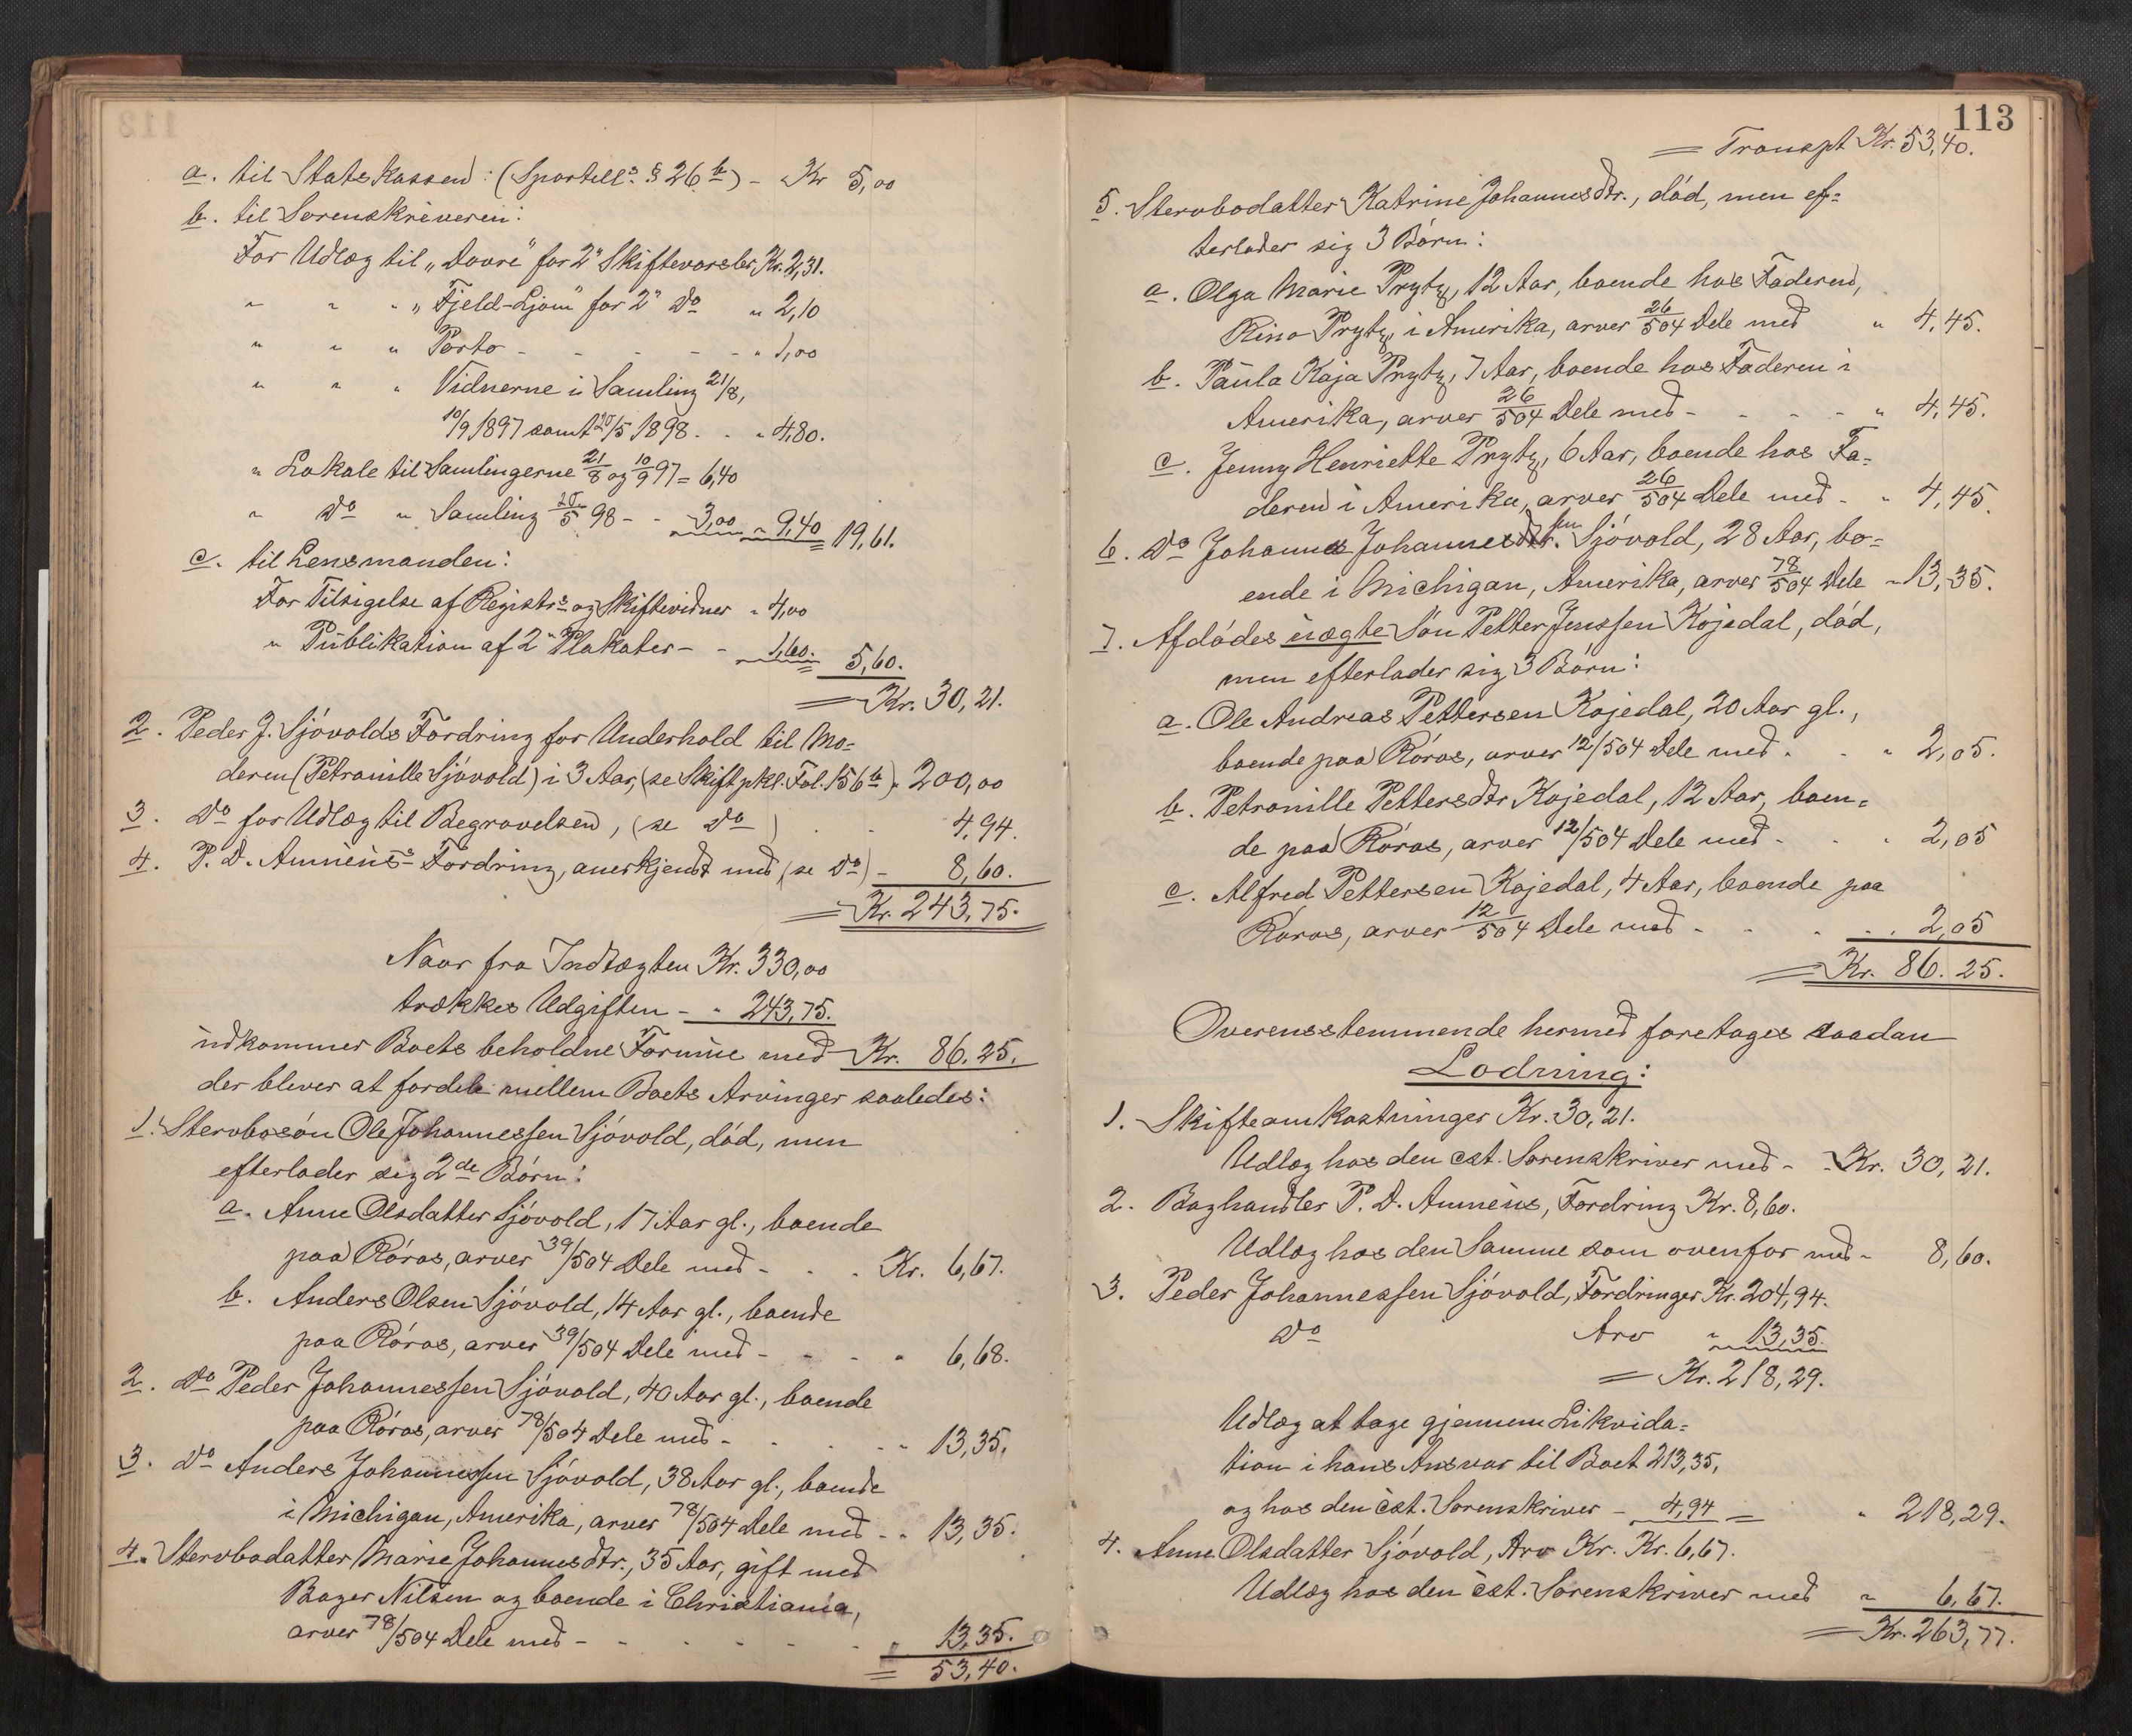 a. til Statskassen: (Sportell: § 26 b) - Kr 5,00
b. til Sorenskriveren:
For Udlæg til „Dovre" for 2" Skiftevarsler, Kr. 2,31.
" " " „Fjeld-Ljom" for 2" Do " 2,10
" " " Porto - - - - - " 1,00
" " " Vidnerne i Samling 21/8,
10/9 1897 samt 25/5 1898 - - " 4,80.
" Lokale til Samlingerne 21/8 og 10/9 97 = 6,40
" Do " Samling 25/5 98 - - 3,00 " 9,40 19,61.
c. til Lensmanden:
For Tilsigelse af Registrs og Skiftevidner " 4,00
" Publikation af 2" Plakater - - 1,60. 5,60.
= Kr. 30,21.
2. Peder J. Sjövolds Fordring for Underhold til Mo=
deren (Petronille Sjövold) i 3 Aar, (se Skiftpkl. Fol. 156 b) - 200,00
3. Do for Udlæg til Begravelsen, (se Do) - - 4,94.
4. P. D. Amnéus' Fordring, anerkjendt med (se Do) - 8,60.
= Kr. 243,75.
Naar fra Indtægten Kr. 330,00
trækkes Udgiften - " 243,75.
udkommer Boets beholdne Formue med Kr. 86,25.
der bliver at fordele mellem Boets Arvinger saaledes:
1. Stervbosön Ole Johannessen Sjövold, död, men
efterlader sig 2de Börn:
a. Anne Olsdatter Sjövold, 17 Aar gl., boende
paa Röros, arver 39/504 Dele med - - - Kr. 6,67.
b. Anders Olsen Sjövold, 14 Aar gl., boende
paa Röros, arver 39/504 Dele med - - - " 6,68.
2. Do Peder Johannessen Sjövold, 40 Aar gl., boende
paa Röros, arver 78/504 Dele med - - - - " 13,35.
3. Do Anders Johannessen Sjövold, 38 Aar gl., boende
i Michigan, Amerika, arver 78/504 Dele med - " 13,35.
4. Stervbodatter Marie Johannesdtr., 35 Aar, gift med
Bager Nilsen og boende i Christiania,
arver 78/504 Dele med - - - - - - " 13,35.
= 53,40.
113
= Transpt Kr. 53,40.
5. Stervbodatter Katrine Johannesdtr., död, men ef=
terlader sig 3 Börn:
a. Olga Marie Prytz, 12 Aar, boende hos Faderen,
Rino Prytz, i Amerika, arver 26/504 Dele med " 4,45.
b. Paula Kaja Prytz, 7 Aar, boende hos Faderen i
Amerika, arver 26/504 Dele med - - - - " 4,45.
c. Jenny Henriette Prytz, 6 Aar, boende hos Fa=
deren i Amerika, arver 26/504 Dele med - " 4,45.
6. Do Johannes Johannessen Sjövold, 28 Aar, bo=
ende i Michigan, Amerika, arver 78/504 Dele " 13,35.
7. Afdödes uægte Sön Petter Jenssen Kojedal, död,
men efterlader sig 3 Börn:
a. Ole Andreas Pettersen Kojedal, 20 Aar gl.,
boende paa Röros, arver 12/504 Dele med - - " 2,05.
b. Petronille Pettersdtr Kojedal, 12 Aar, boen=
de paa Röros, arver 12/504 Dele med - - " 2,05
c. Alfred Pettersen Kojedal, 4 Aar, boende paa
Röros, arver 12/504 Dele med - - - - " 2,05
= Kr. 86.25.
Overensstemmende hermed foretages saadan
Lodning:
1. Skifteomkostninger Kr. 30,21.
Udlæg hos den cst. Sorenskriver med - - Kr. 30,21.
2. Boghandler P. D. Amnéus, Fordring Kr. 8,60.
Udlæg hos den Samme som ovenfor med - 8,60.
3. Peder Johannessen Sjövold, Fordringer Kr. 204,94.
Do Arv " 13,35.
= Kr. 218,29.
Udlæg at tage gjennem Likvida=
tion i hans Ansvar til Boet 213,35,
og hos den cst. Sorenskriver - 4,94 = " 218,29.
4. Anne Olsdatter Sjövold, Arv Kr. Kr. 6,67.
Udlæg hos den cst. Sorenskriver med " 6,67.
= Kr. 263,77.